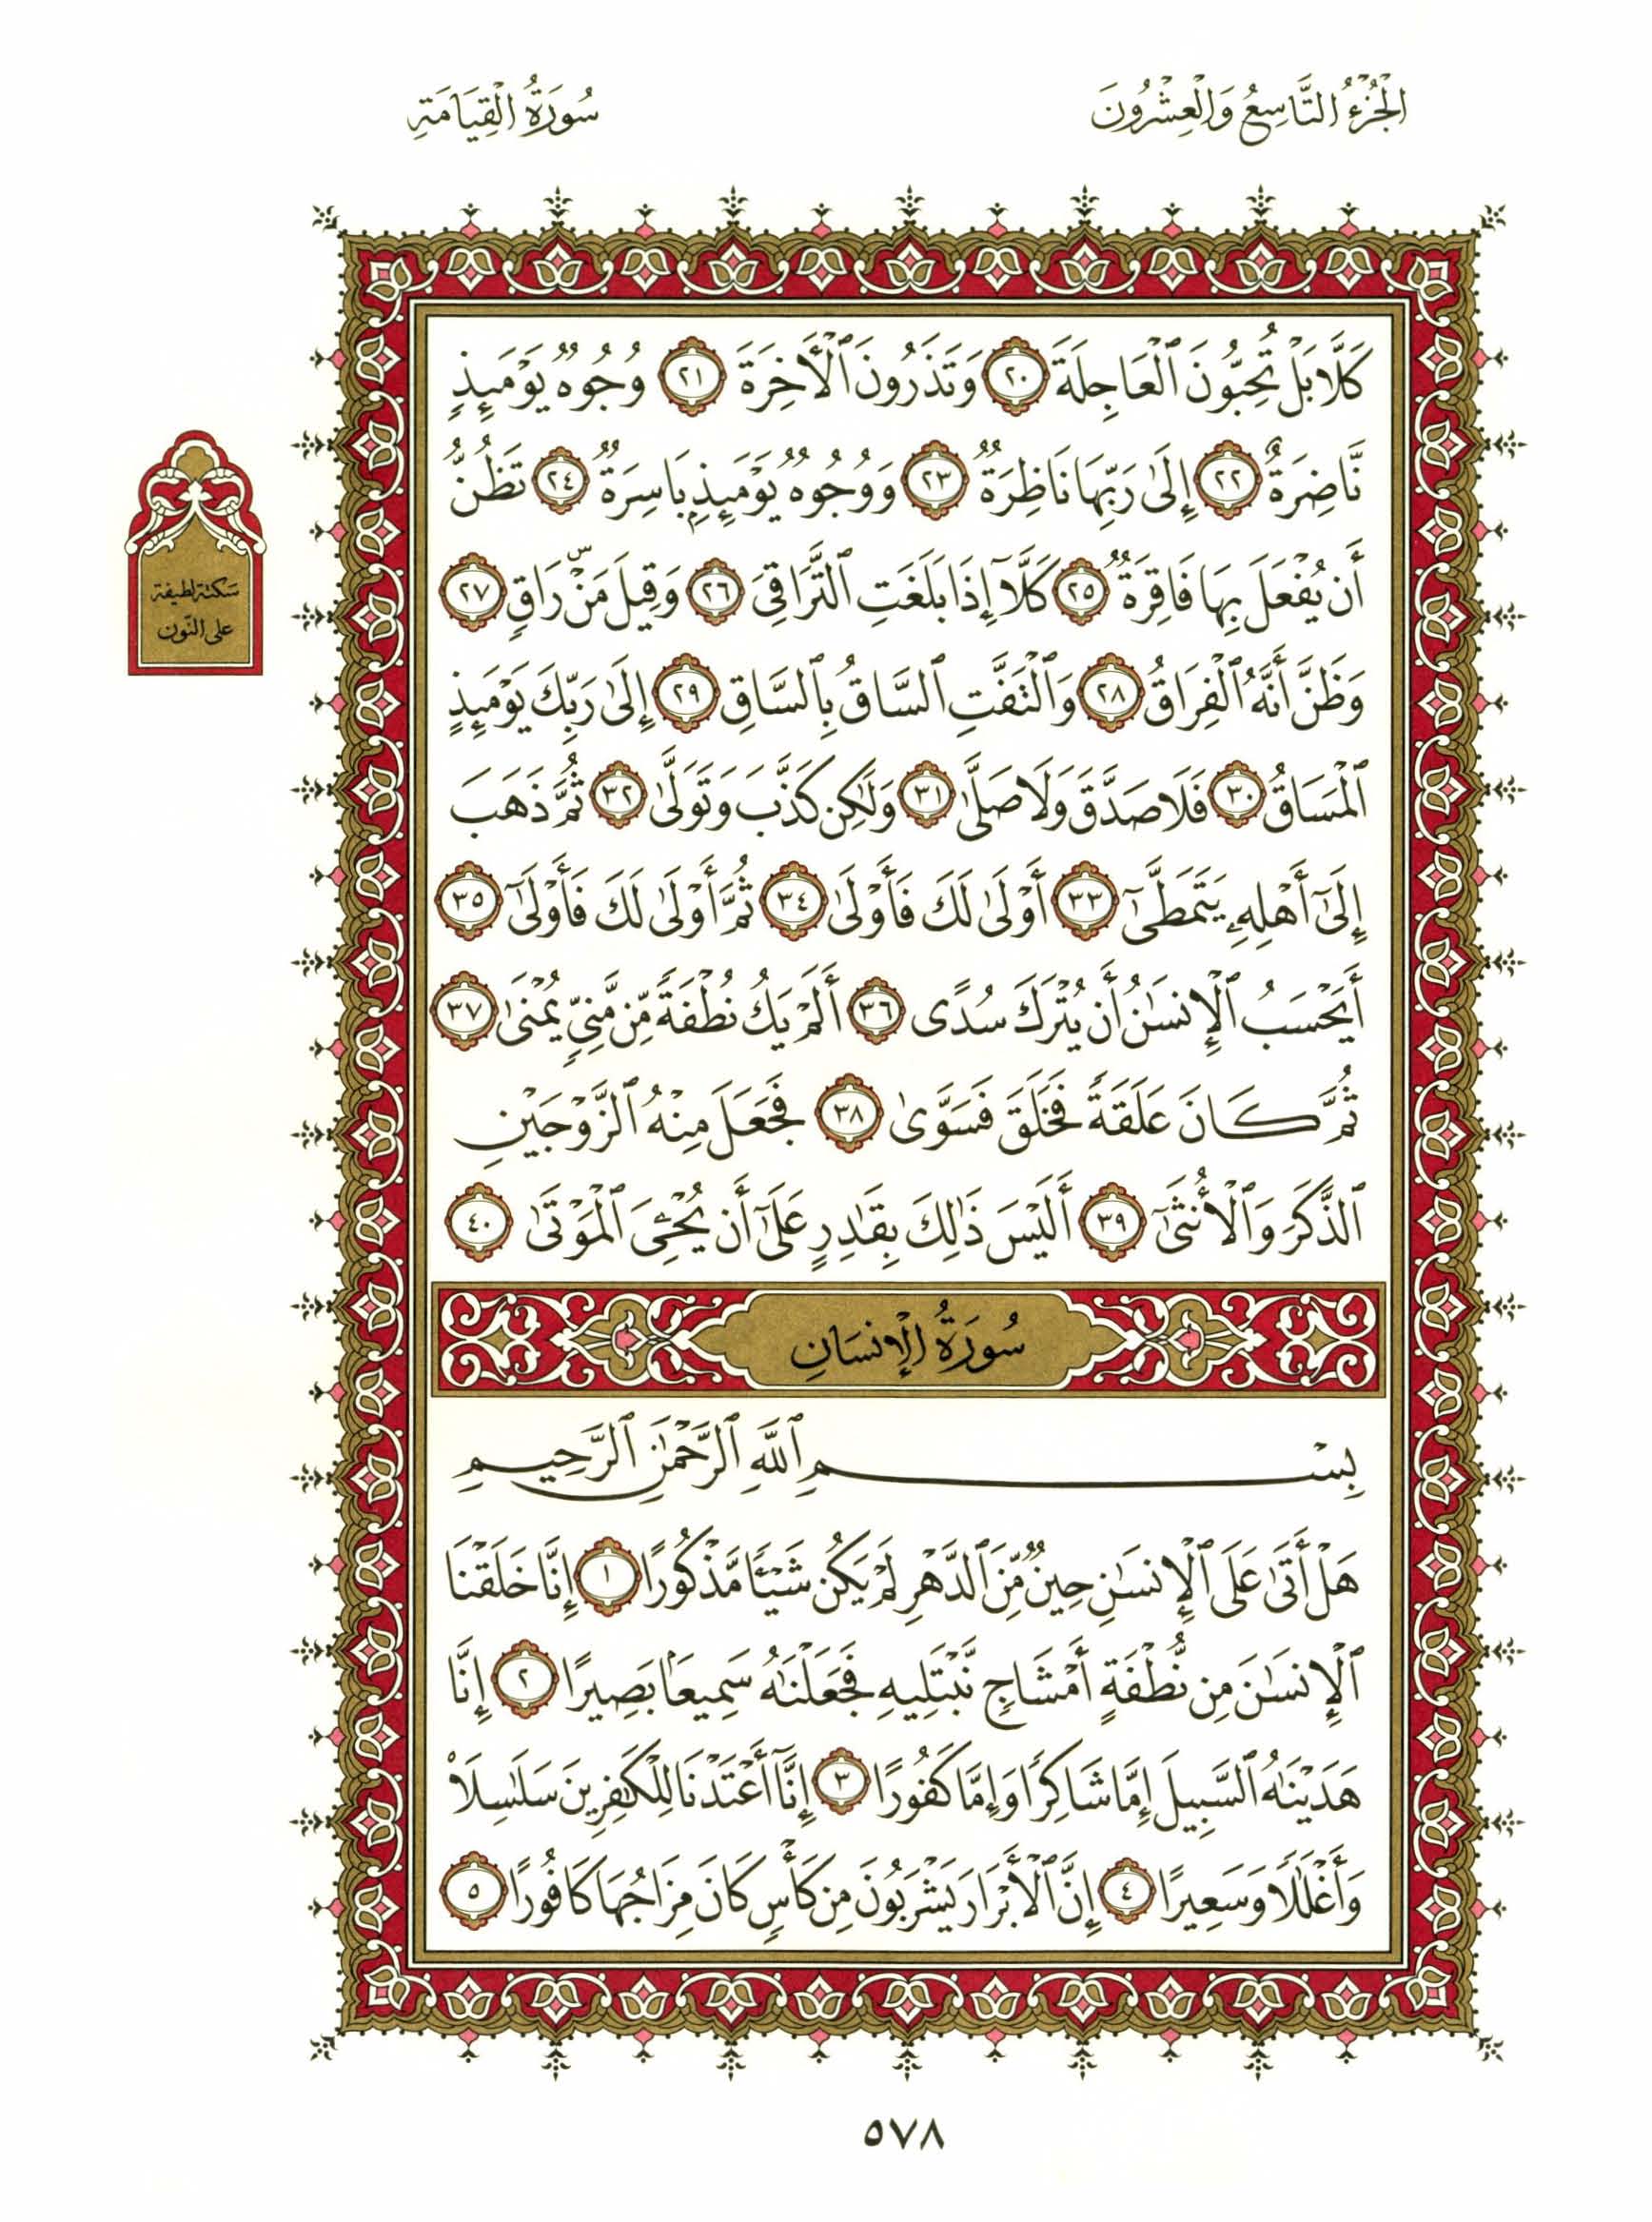 الجُزْءُ التَّاسِعُ وَالْعِشْرُونَ
سُورَةُ الْقِيَامَةِ
كَلَّا بَلْ تُحِبُّونَ ٱلْعَاجِلَةَ ٢٠ وَتَذَرُونَ ٱلْأَخِرَةَ ٢١ وُجُوهٌ يَوْمَئِذٍ
نَّاضِرَةٌ ٢٢ إِلَىٰ رَبِّهَا نَاظِرَةٌ ٢٣ وَوُجُوهٌ يَوْمَئِذٍۭ بَاسِرَةٌ ٢٤ تَظُنُّ
أَن يُفْعَلَ بِهَا فَاقِرَةٌ ٢٥ كَلَّآ إِذَا بَلَغَتِ ٱلتَّرَاقِىَ ٢٦ وَقِيلَ مَنْۜ رَاقٍ ٢٧
وَظَنَّ أَنَّهُ ٱلْفِرَاقُ ٢٨ وَٱلْتَفَّتِ ٱلسَّاقُ بِٱلسَّاقِ ٢٩ إِلَىٰ رَبِّكَ يَوْمَئِذٍ
ٱلْمَسَاقُ ٣٠ فَلَا صَدَّقَ وَلَا صَلَّىٰ ٣١ وَلَٰكِن كَذَّبَ وَتَوَلَّىٰ ٣٢ ثُمَّ ذَهَبَ
إِلَىٰٓ أَهْلِهِۦ يَتَمَطَّىٰٓ ٣٣ أَوْلَىٰ لَكَ فَأَوْلَىٰ ٣٤ ثُمَّ أَوْلَىٰ لَكَ فَأَوْلَىٰٓ ٣٥
أَيَحْسَبُ ٱلْإِنسَٰنُ أَن يُتْرَكَ سُدًى ٣٦ أَلَمْ يَكُ نُطْفَةً مِّن مَّنِىٍّ يُمْنَىٰ ٣٧
ثُمَّ كَانَ عَلَقَةً فَخَلَقَ فَسَوَّىٰ ٣٨ فَجَعَلَ مِنْهُ ٱلزَّوْجَيْنِ
ٱلذَّكَرَ وَٱلْأُنثَىٰٓ ٣٩ أَلَيْسَ ذَٰلِكَ بِقَٰدِرٍ عَلَىٰٓ أَن يُحْـِۧىَ ٱلْمَوْتَىٰ ٤٠
سُورَةُ الْإِنسَانِ
بِسْمِ ٱللَّهِ ٱلرَّحْمَٰنِ ٱلرَّحِيمِ
هَلْ أَتَىٰ عَلَى ٱلْإِنسَٰنِ حِينٌ مِّنَ ٱلدَّهْرِ لَمْ يَكُن شَيْـًٔا مَّذْكُورًا ١ إِنَّا خَلَقْنَا
ٱلْإِنسَٰنَ مِن نُّطْفَةٍ أَمْشَاجٍ نَّبْتَلِيهِ فَجَعَلْنَٰهُ سَمِيعًۢا بَصِيرًا ٢ إِنَّا
هَدَيْنَٰهُ ٱلسَّبِيلَ إِمَّا شَاكِرًا وَإِمَّا كَفُورًا ٣ إِنَّآ أَعْتَدْنَا لِلْكَٰفِرِينَ سَلَٰسِلَا۟
وَأَغْلَٰلًا وَسَعِيرًا ٤ إِنَّ ٱلْأَبْرَارَ يَشْرَبُونَ مِن كَأْسٍ كَانَ مِزَاجُهَا كَافُورًا ٥
سَكتة لطيفة
على النّون
٥٧٨